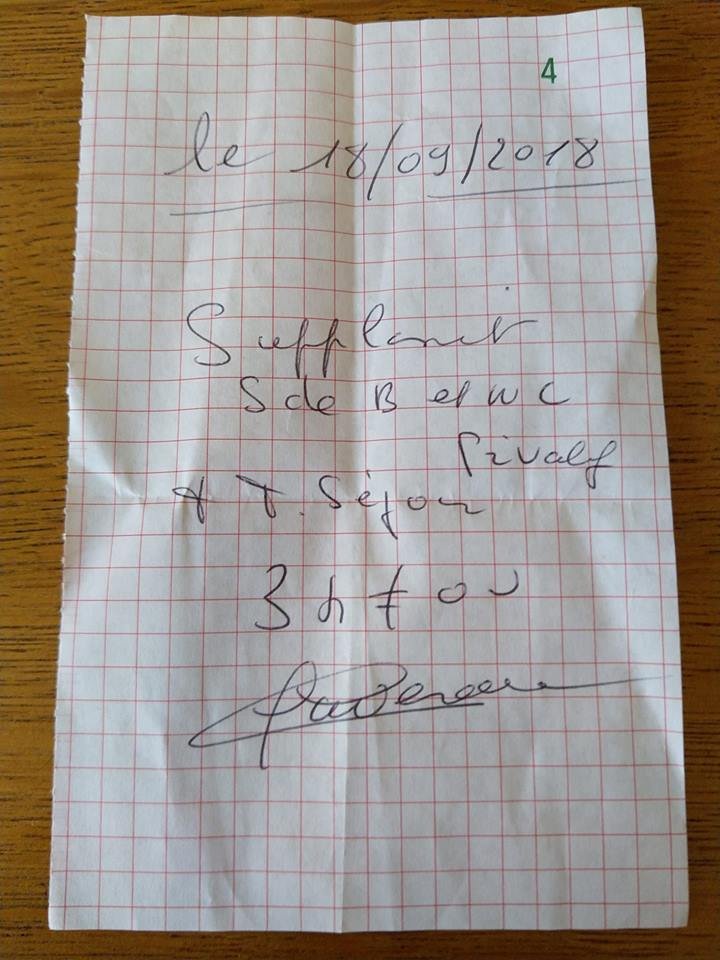 4
le 18/09/2018
Supplément
S de B et WC
Privatif
+ T. Séjour